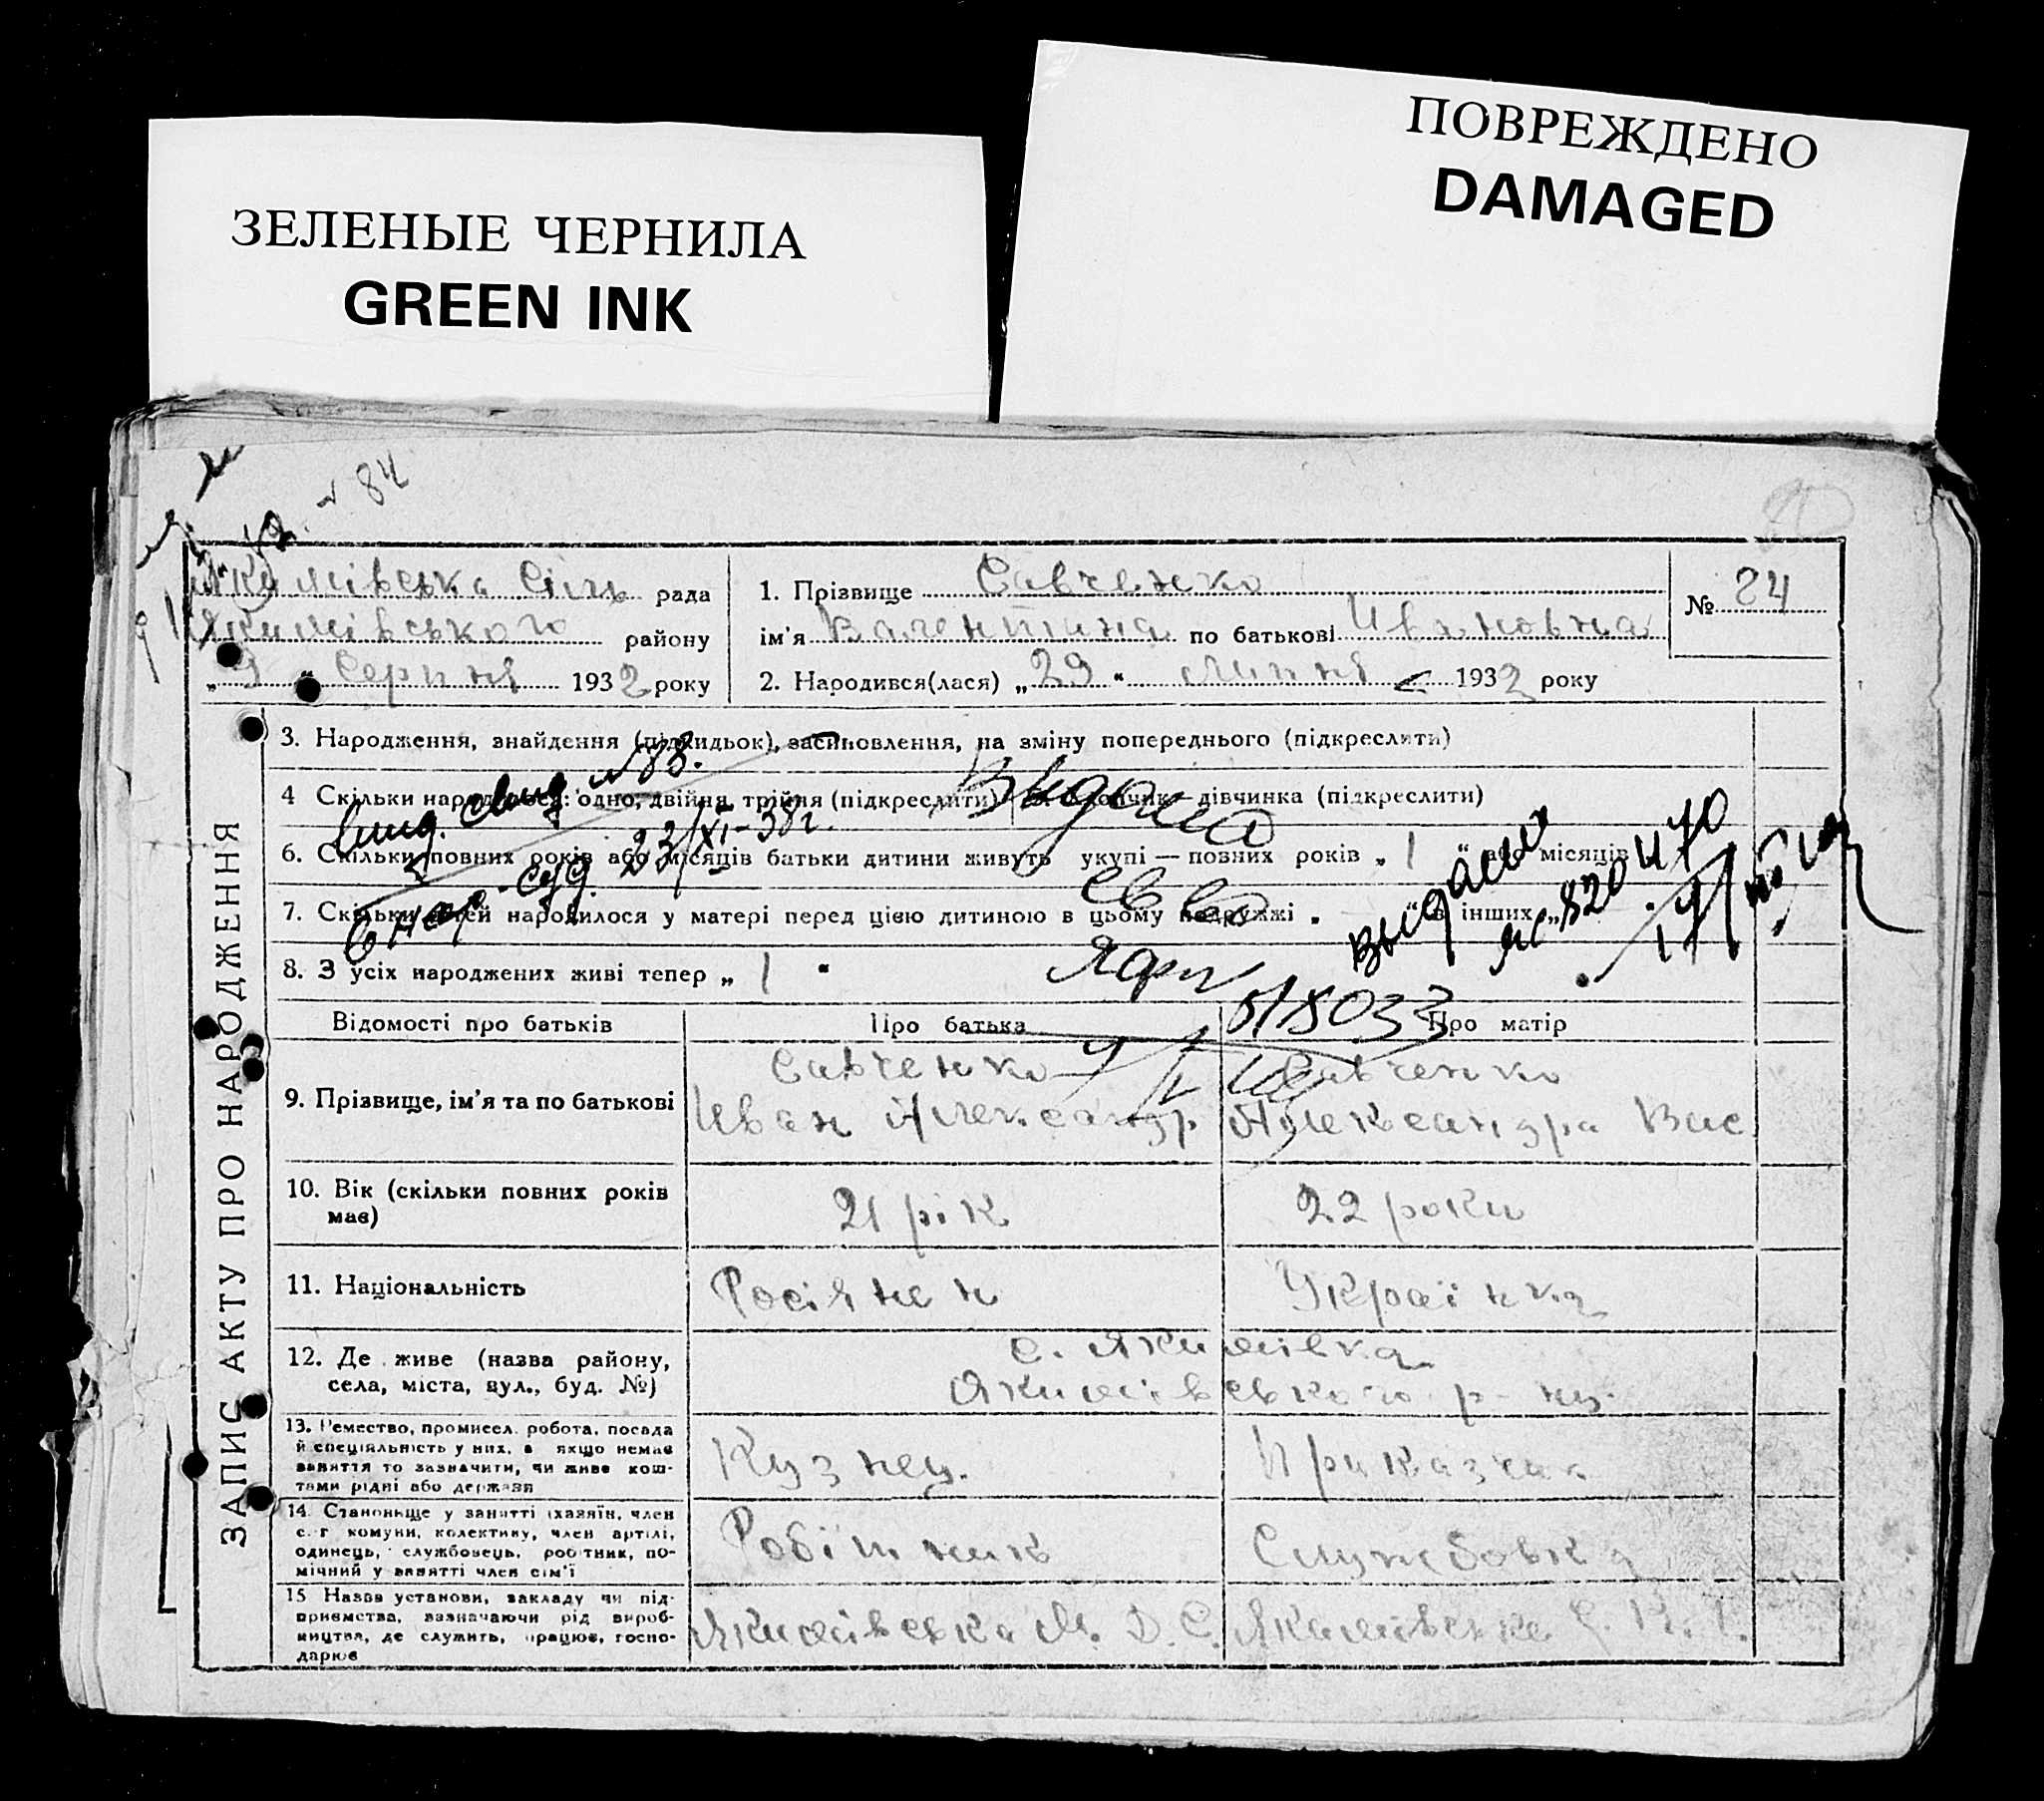 ПОВРЕЖДЕНО
DAMAGED
ЗЕЛЕНЫЕ ЧЕРНИЛА
GREEN INK
84
Якимівська Сіль рада
Якимівського району
„ 9 “ Серпня 1932 року
1. Прізвище Савченко
ім'я Валентина по батькові Ивановна
№ 84
2. Народився(лася) „ 29 “ Липня 1932 року
ЗАПИС АКТУ ПРО НАРОДЖЕННЯ
3. Народження, знайдення (підкидьок), засиновлення, на зміну попереднього (підкреслити)
4 Скільки народилося: одно, двійня, трійня (підкреслити) хлопчик — дівчинка (підкреслити)
6. Скільки повних років або місяців батьки дитини живуть укупі — повних років „ 1 “ або місяців
7. Скільки дітей народилося у матері перед цією дитиною в цьому подружжі „ “ в інших „
8. З усіх народжених живі тепер „ 1 “
№ 88.
23/XI-38г.
Видано
выдано
820470
018033
Відомості про батьків
Про батька
Про матір
9. Прізвище, ім'я та по батькові
Савченко
Иван Александр
Савченко
Александра Вас
10. Вік (скільки повних років має)
21 рік
22 роки
11. Національність
Росіянен
Українка
12. Де живе (назва району,
села, міста, вул., буд. №)
с. Якимівка
Якимівського р-ну.
13. Ремество, промисел, робота, посада
й спеціяльність у них, а якщо немає
заняття то зазначити, чи живе кош-
тами рідні або держави
Кузнец.
Приказчик
14. Становище у занятті (хазяїн, член
с.-г комуни, колективу, член артілі,
одинець, службовець, робітник, по-
мічний у занятті член сім'ї
Робітник
Службовка
15 Назва установи, закладу чи під-
приємства, зазначаючи рід вироб-
ництва, де служить, працює, госпо-
дарює
Якимівська М. Д. С.
Якимівське